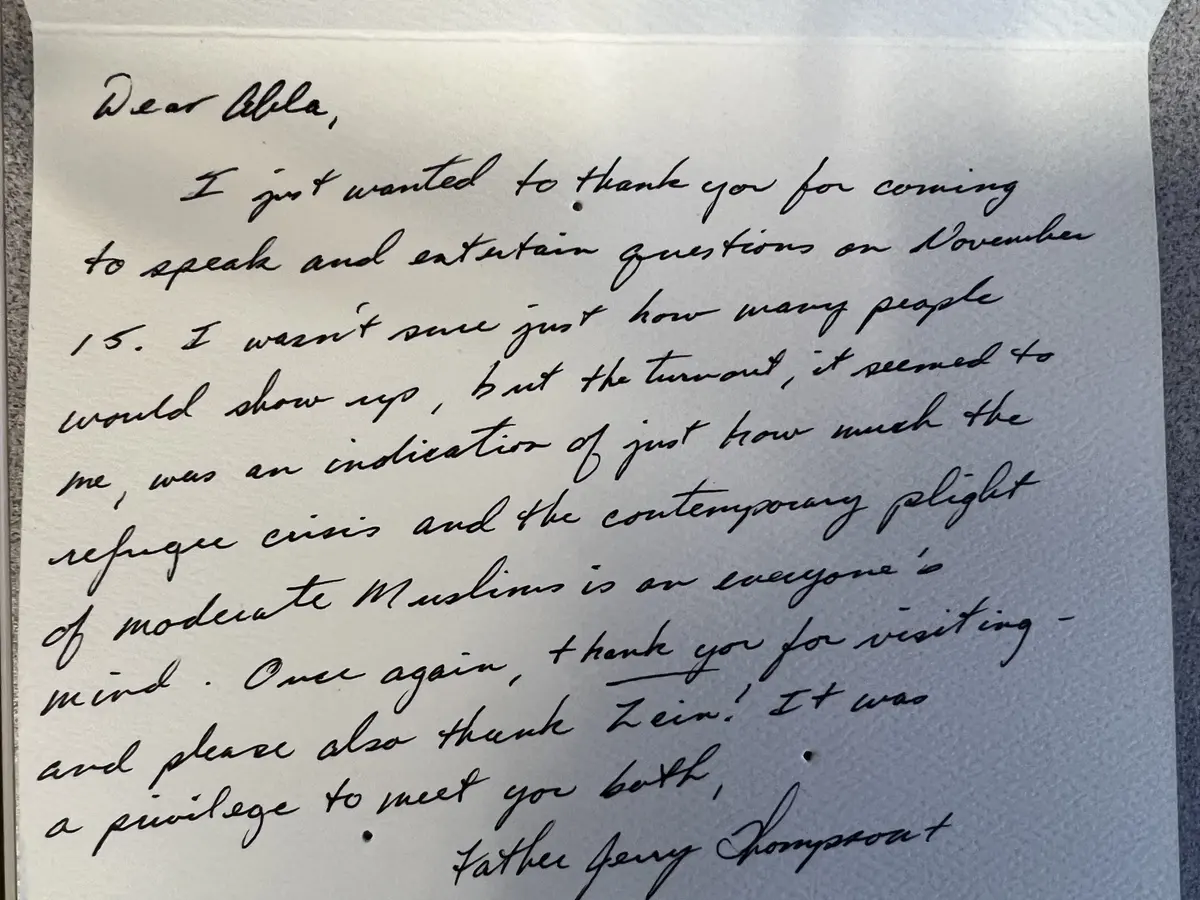 Dear Abla,
I just wanted to thank you for coming
to speak and entertain questions on November
15. I wasn't sure just how many people
would show up, but the turnout, it seemed to
me, was an indication of just how much the
refugee crisis and the contemporary plight
of moderate Muslims is on everyone's
mind. Once again, thank you for visiting -
and please also thank Zein! It was
a privilege to meet you both,
Father Jerry Thompson+